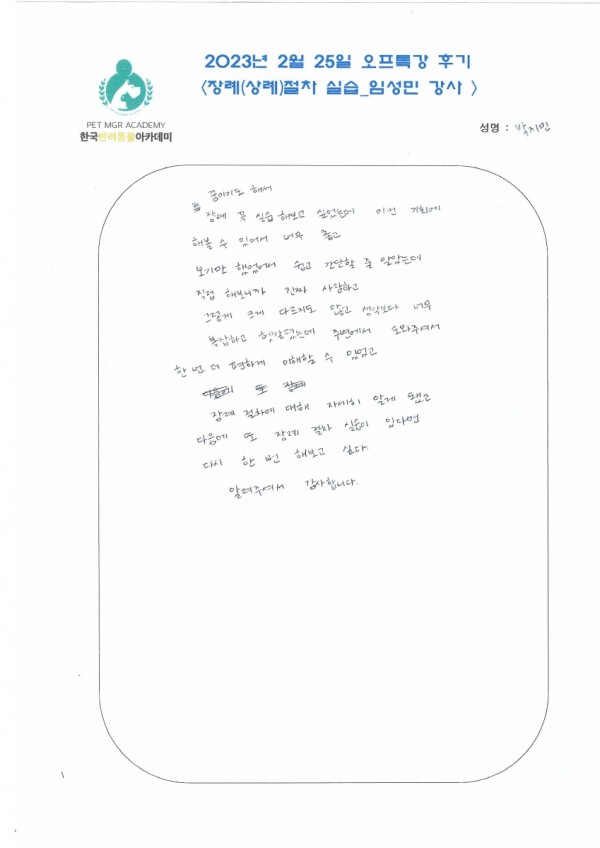 2023년 2월 25일 오프특강 후기
<장례(상례)절차 실습_임성민 강사 >
PET MGR ACADEMY
한국반려동물아카데미
성명 : 박지민
꿈이기도 해서
장례 꼭 실습 해보고 싶었는데 이번 기회에
해볼 수 있어서 너무 좋고
보기만 했었어서 쉽고 간단할 줄 알았는데
직접 해보니까 진짜 사람하고
그렇게 크게 다르지도 않고 생각보다 너무
복잡하고 헷갈렸는데 주변에서 도와주셔서
한 번 더 편하게 이해할 수 있었고
장례 절차에 대해 자세히 알게 됐고
다음에 또 장례 절차 실습이 있다면
다시 한 번 해보고 싶다.
알려주셔서 감사합니다.